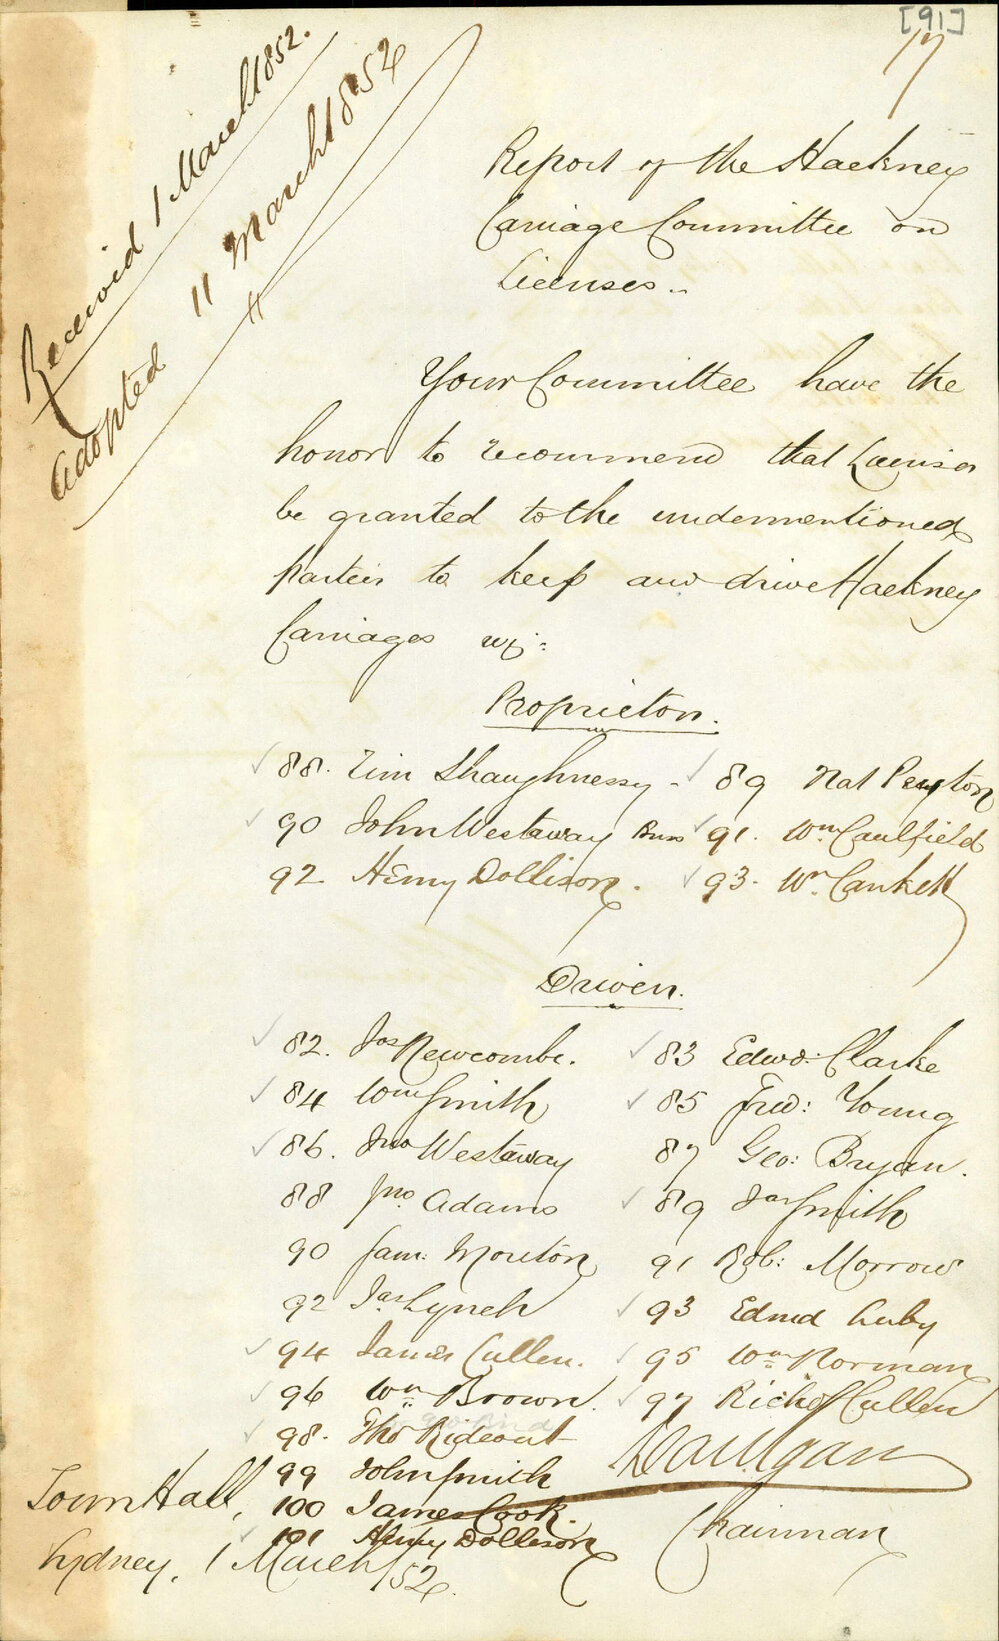 [91]
17
Received 1 March 1852.
Adopted 11 March 1852
Report of the Hackney
Carriage Committee on
Licenses..
Your Committee have the
honor to recommend that Licenses
be granted to the undermentioned
parties to keep and drive Hackney
Carriages viz:
Proprietors.
88. Tim Shaughnessy - 89 Nat Peyton
90 John Westaway Buss 91. Wm Caulfield
92 Henry Dollison. 93. Wm Cankett
Drivers.
82. Jos Newcombe. 83 Edwd: Clarke
84 Wm Smith 85 Fred: Young
86. Jno Westaway 87 Geo: Bryan.
88 Jno Adams 89 Jas Smith
90 Sam: Mouton 91 Rob: Morrow
92 Jas Lynch 93 Edmd Luby
94 James Cullen. 95 Wm Norman
96 Wm Brown. 97 Richd Cullen
98. Tho Rideout
99 John Smith
100 James Cook.
101 Henry Dollison
Chairman
Town Hall,
Sydney, 1 March /52.